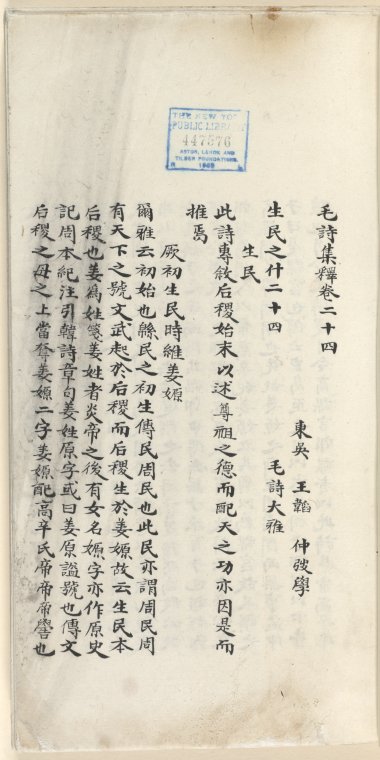 THE NEW YO
PUBLIC LIBRA
447576
ASTOR, LENOX AND
TILDEN FOUNDATIONS.
1909
毛詩集釋卷二十四
東吳 王韜 仲弢學
生民之什二十四 毛詩大雅
生民
此詩專敘后稷始末以述尊祖之德而配天之功亦因是而
推焉
厥初生民時維姜嫄
爾雅云初始也緜民之初生傳民周民也此民亦謂周民周
有天下之號文武起於后稷而后稷生於姜嫄故云生民本
后稷也姜為姓箋姜姓者炎帝之後有女名嫄字亦作原史
記周本紀注引韓詩章句姜姓原字或曰姜原謚號也傳文
后稷之母之上當奪姜嫄二字姜嫄配高辛氏帝帝帝嚳也